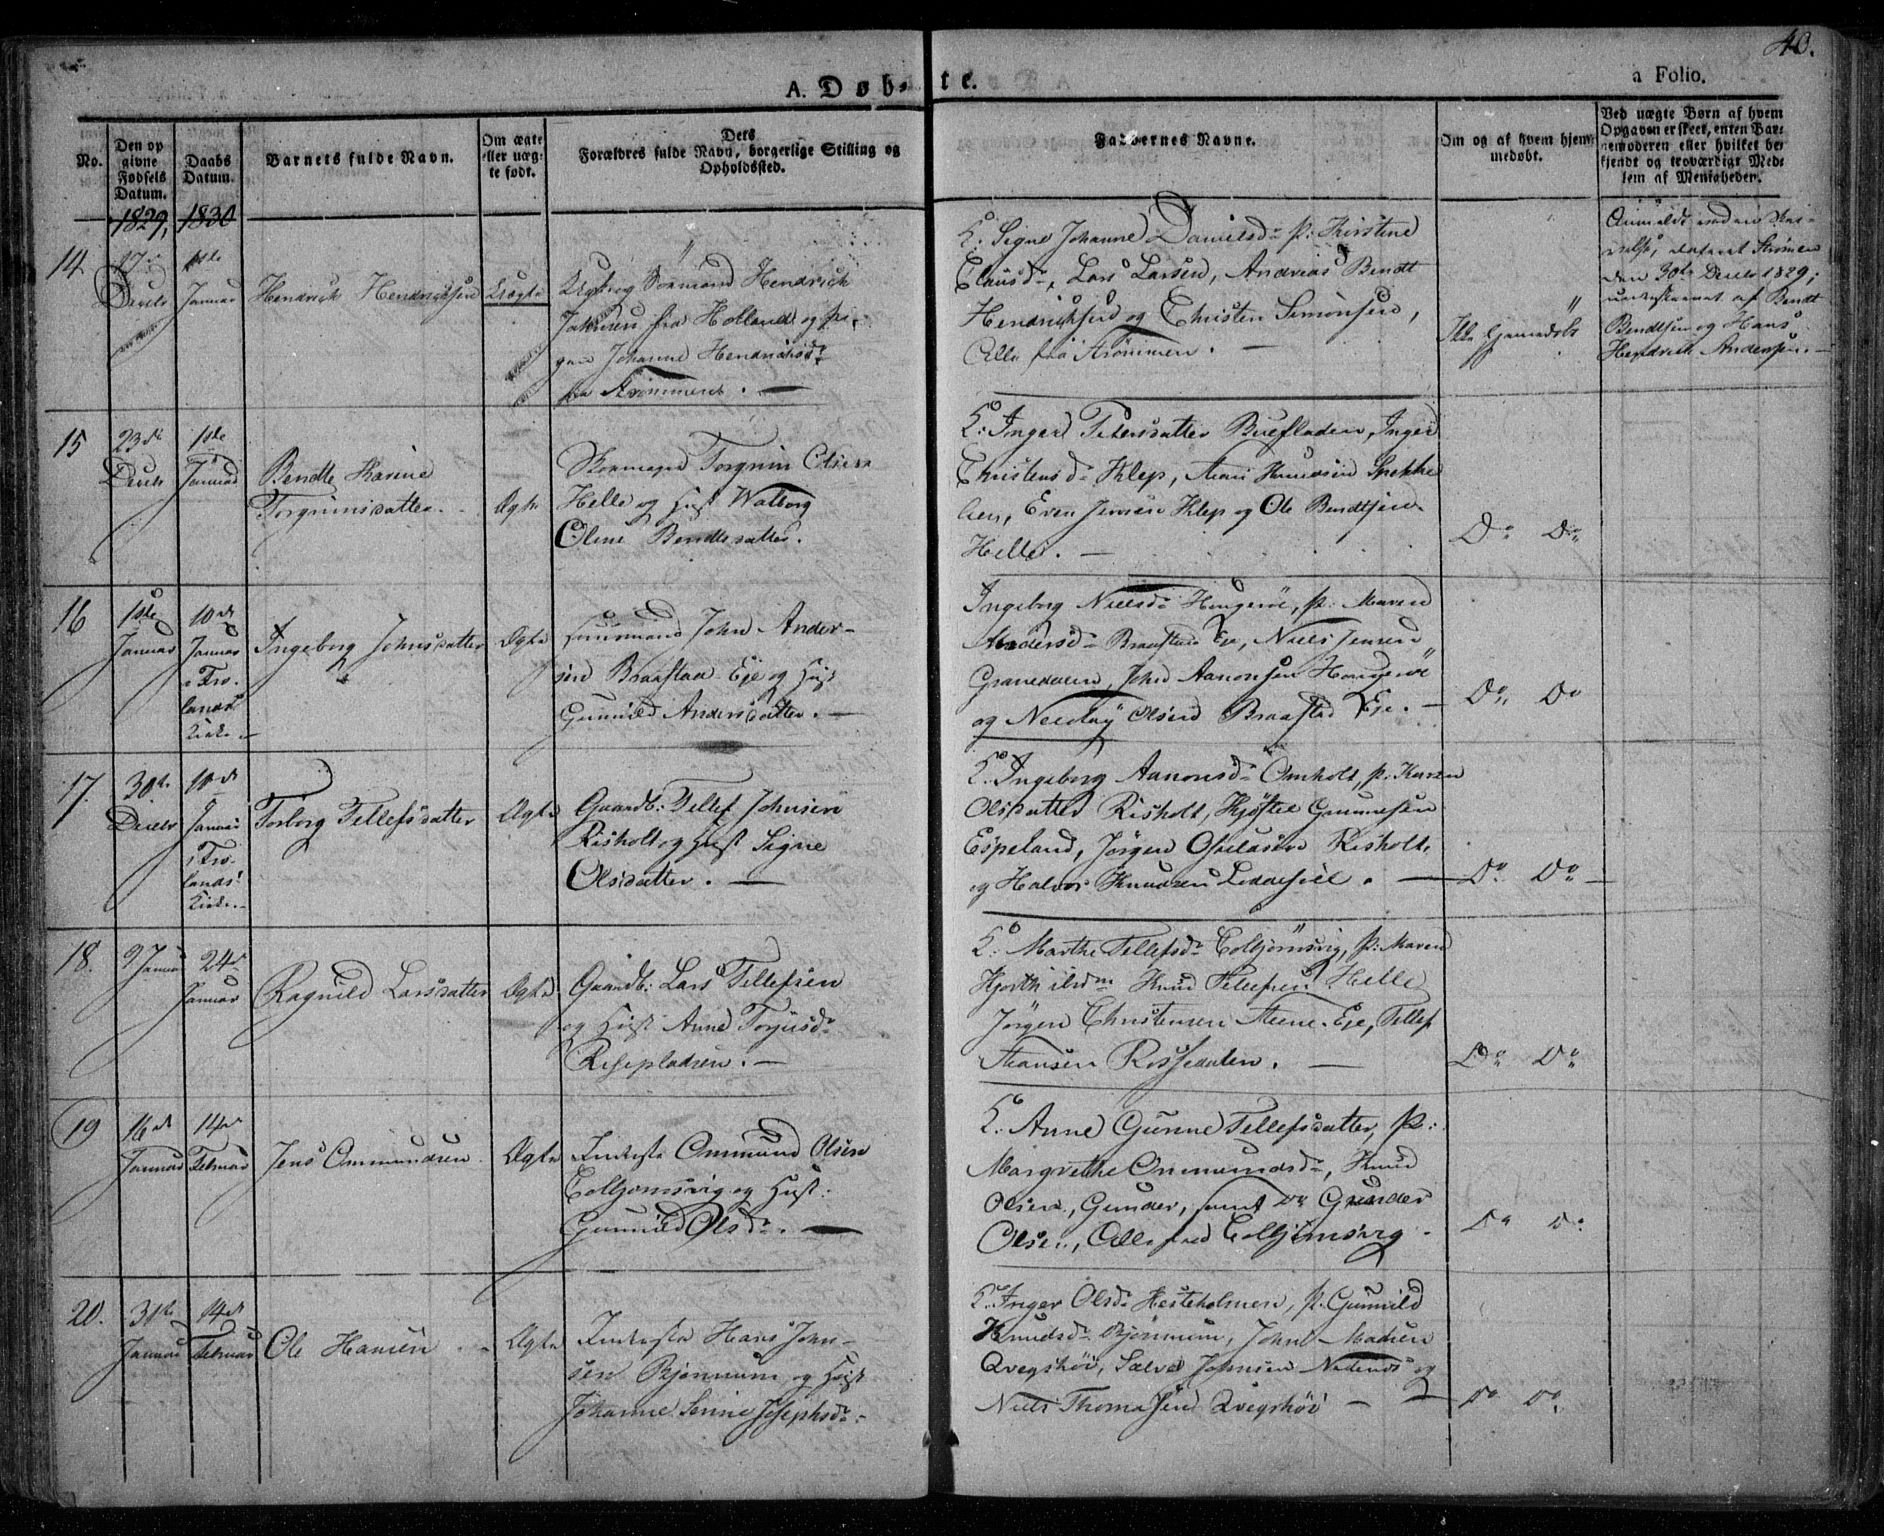 40.
A. Døbte.
a Folio.
No.
Den op
givne
Fødsels
Datum.
Daabs
Datum.
Barnets fulde Navn.
Om ægte
eller uæg-
te født.
Dets
Forældres fulde Navn, borgerlige Stilling og
Opholdssted.
Faddernes Navne.
Om og af hvem hjem-
medøbt.
Ved uægte Børn af hvem
Opgaven er skeet, enten Bar-
nemoderen eller hvilket be-
kjendt og troværdigt Med-
lem af Menigheden.
1829, 1830
14
17de
Decbr
1ste
Januar
Hendrich Hendrichsen
Uægte
Hendrich
Jansen fra Holland og pi-
gen Johanne Hendrichsdr
fra Strømmen.
K: Signe Johanne Danielsdr p: Kirstine
Clausdr, Lars Larsen, Andreas Bendt
Hendrichsen og Christen Simonsen,
Alle fra Strømmen.
Ikke hjemmedøbt
Anmeldt ved en Skri-
velse, dateret Strømen
den 30te Decbr 1829,
underskrevet af Bendt
Bendtsen og Hans
Hendrich Andersen.
15
23de
Decbr
1ste
Januar
Bendte Karine
Torgrimsdatter
Ægte
Skomager Torgrim Olsen
Helle og Hust Walborg
Oline Bendtesdatter.
K: Inger Petersdatter Buefladen, Inger
Christensdr Klep, Knudsen
Even Jensen Klep og Ole Bendtsen
Helle.
Do Do
16
1ste
Januar
10de
Januar
i Fro-
lands
Kirke.
Ingeborg Johnsdatter
Ægte
Huusmand John Ander-
sen Braastad Eje og Hust
Gunnild Andersdatter.
Ingeborg Nielsdr Haugerøe, p: Maren
Andersdr Braastad Eje, Niels Jensen
Granedalen, John Aanonsen Haugerøe
og Nicolay Olsen Braastad Eje.
Do Do
17.
30te
Decbr
10de
Januar
i Fro-
lands
Kirke.
Torborg Tellefsdatter
Ægte
Gaardb: Tellef Johnsen
Risholt og Hust Signe
Olsdatter.
K: Ingeborg Aanonsdr Omholt, p: Karen
Olsdatter Risholt, Kjøstel Gunnersen
Espeland, Jørgen Risholt,
og Halvor Knudsen Lddesøel.
Do Do
18.
9 Januar
24de
Januar
Ragnild Larsdatter
Ægte
Gaardb: Lars Tellefsen
og Hust Anne Torjusdr
Risepladsen.
K: Marthe Tellefsdr Colbjørnsvig, p: Maren
Knud Tellefsen Helle
Jørgen Christensen Steene Eje, Tellef
Rossedalen.
Do Do
19
16de
Januar
14de
Februar
Jens Ommundsen
Ægte
Inderste Ommund Olsen
Colbjørnsvig og Hust:
Gunnild Olsdr.
K: Anne Gunne Tellefsdatter, p:
Margrethe Ommundsdr, Knud
Olsen, Gunder, samt do Gunder
Olsen, Alle fra Colbjørnsvig.
Do Do
20.
31te
Januar
14de
Februar
Ole Hansen
Ægte
Inderste Hans John-
sen Bjønnum og Hust
Johanne Serine Josephsdr
K: Inger Olsdr Hesteholmen, p: Gunnild
Knudsdr Bjønnum, John Madsen
Qvegshøi, Salve Johnsen Nedenes og
Niels Thomassen Qvegshøi
Do Do